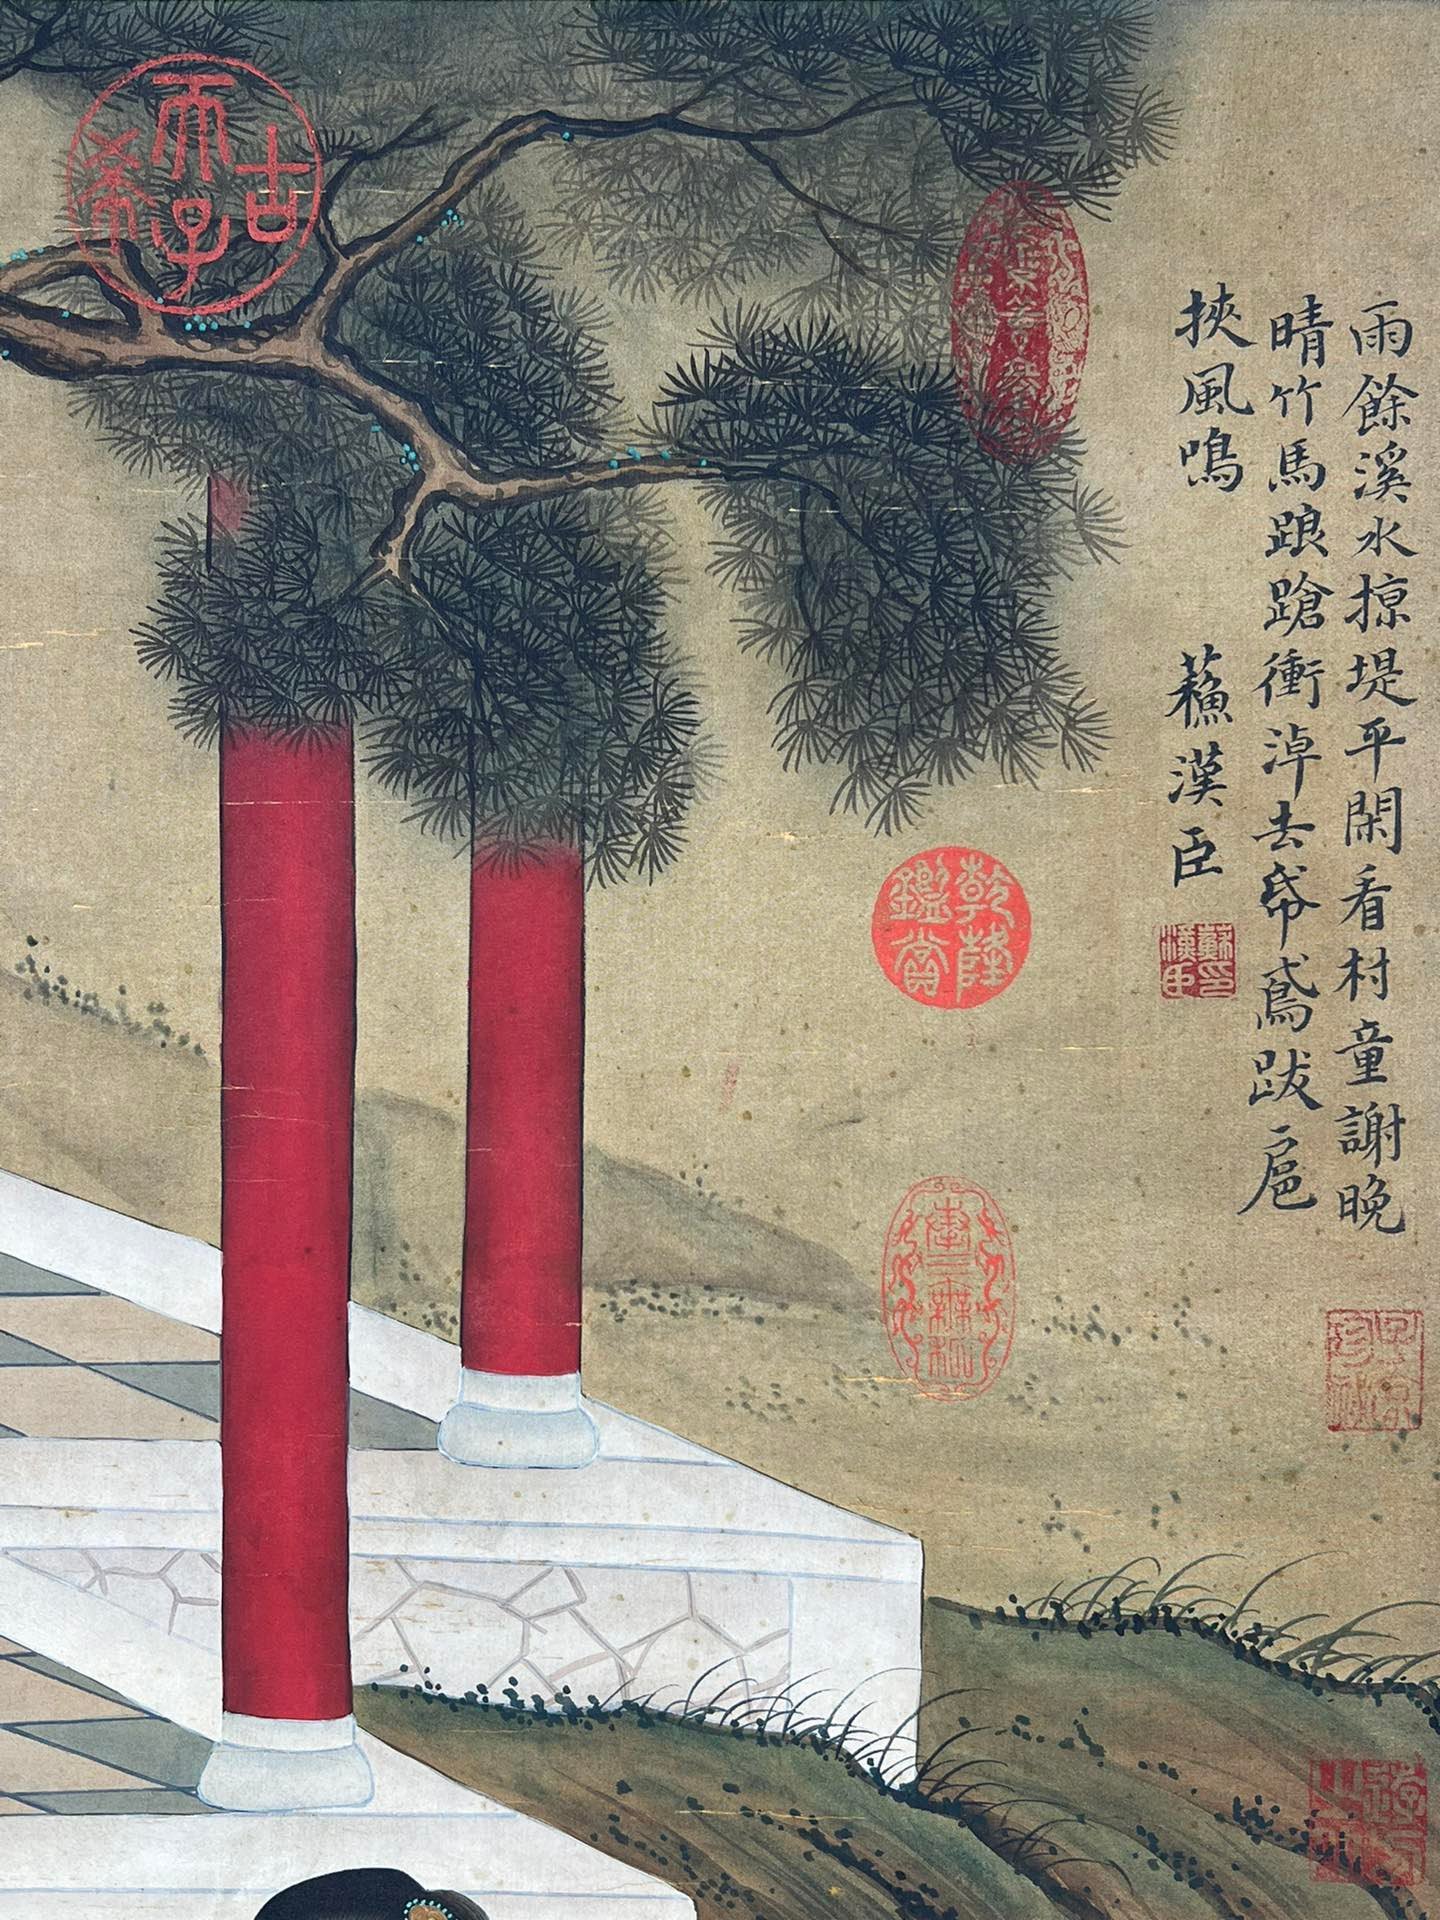 雨餘溪水掠堤平閑看村童謝晚
晴竹馬踉蹌衝淖去帋鳶跋扈
挾風鳴
蘓漢臣
古希天子
乾隆鑑賞
蘇漢臣印